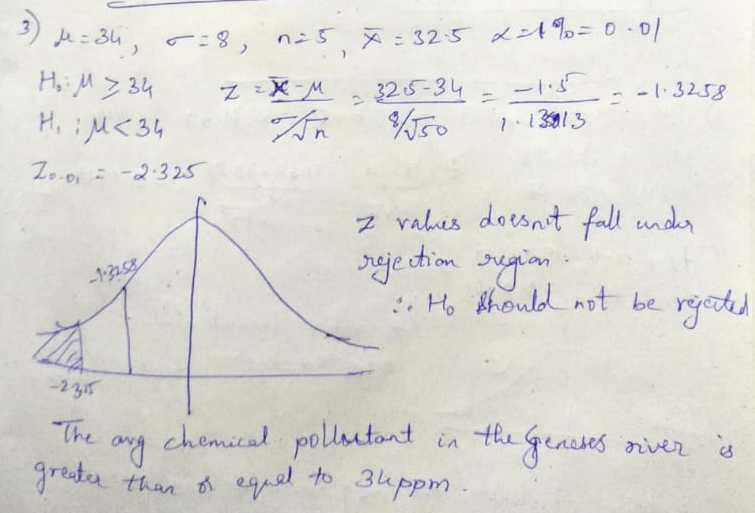 3) μ = 34, σ = 8, n = 5, x̄ = 32.5 α = 1% = 0.01
H₀: μ ≥ 34 z = x̄ - μ / σ/√n = 32.5 - 34 / 8/√50 = -1.5 / = -1.3258
H₁: μ < 34
Z₀.₀₁ = -2.325
z values doesn't fall under
rejection region.
∴ H₀ should not be rejected
-1.3258
The avg chemical pollutant in the river is
greater than or equal to 34ppm.